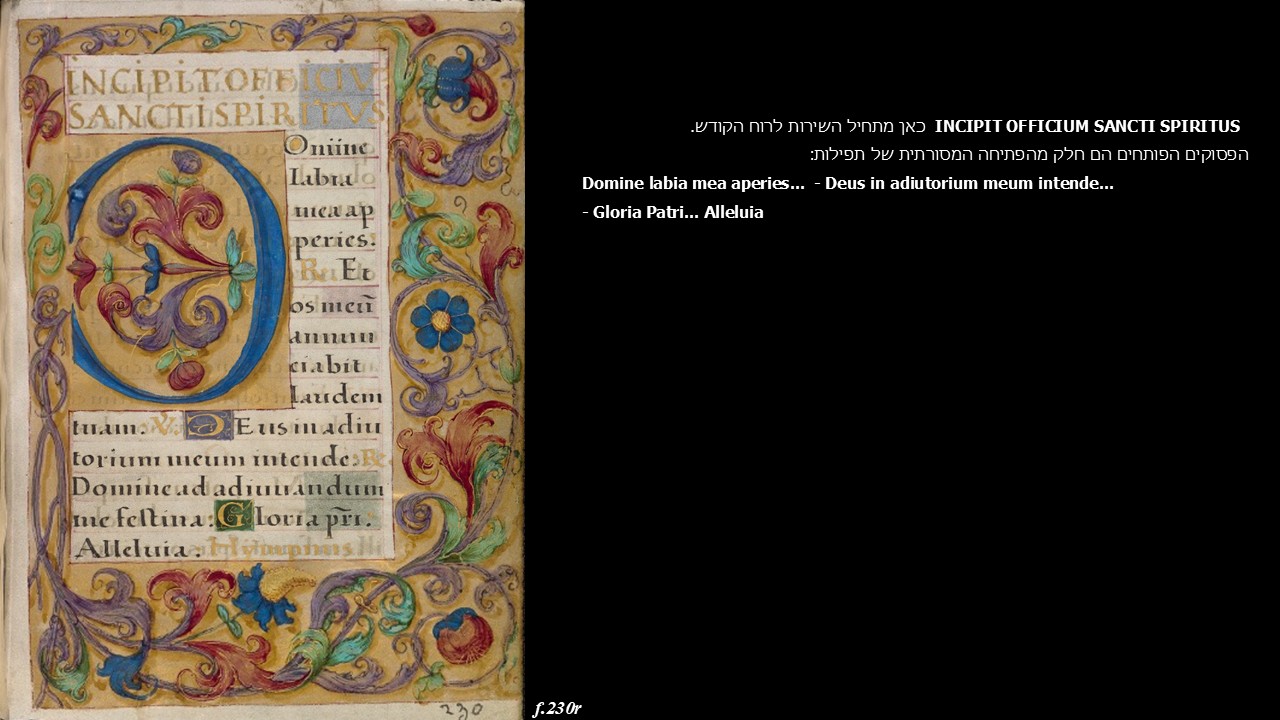 INCIPIT OFFICIV
SANCTI SPIRITVS
Omine
labia
mea ap
peries:
R. Et
os meū
annun
ciabit
laudem
tuam. V. DEus in adiu
torium meum intende: R.
Domine ad adiuuandum
me festina: Gloria pr̄i.
Alleluia. Hymphus
230
f.230r
INCIPIT OFFICIUM SANCTI SPIRITUS כאן מתחיל השירות לרוח הקודש.
הפסוקים הפותחים הם חלק מהפתיחה המסורתית של תפילות:
Domine labia mea aperies... - Deus in adiutorium meum intende...
- Gloria Patri... Alleluia